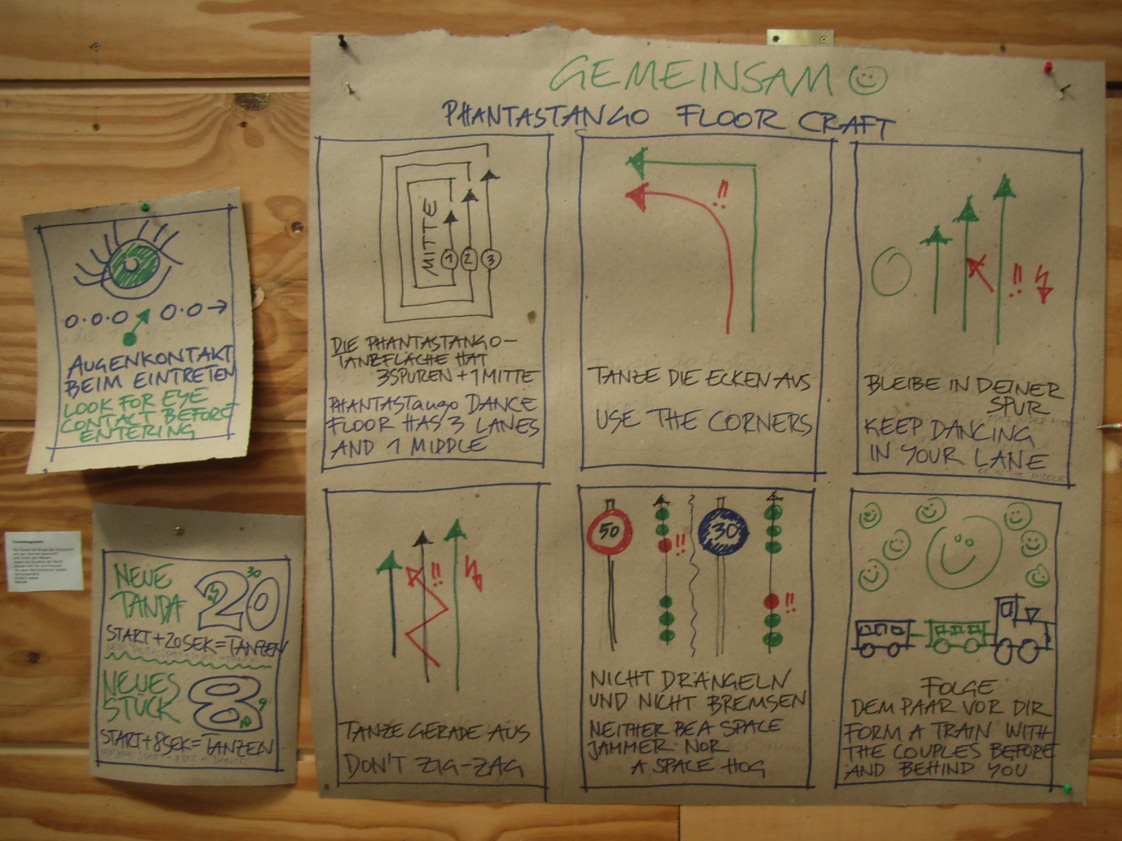 GEMEINSAM
PHANTASTANGO FLOOR CRAFT
AUGENKONTAKT
BEIM EINTRETEN
LOOK FOR EYE
CONTACT BEFORE
ENTERING
MITTE
1 2 3
DIE PHANTASTANGO-
TANZFLÄCHE HAT
3 SPUREN + 1 MITTE
PHANTASTango DANCE
FLOOR HAS 3 LANES
AND 1 MIDDLE
!!
TANZE DIE ECKEN AUS
USE THE CORNERS
!!
BLEIBE IN DEINER
SPUR
KEEP DANCING
IN YOUR LANE
NEUE
TANDA
20
30
START + 20 SEK = TANZEN
NEUES
STÜCK
8
9
10
START + 8 SEK = TANZEN
!!
TANZE GERADE AUS
DON'T ZIG-ZAG
50
!!
30
!!
NICHT DRÄNGELN
UND NICHT BREMSEN
NEITHER BE A SPACE
JAMMER NOR
A SPACE HOG
FOLGE
DEM PAAR VOR DIR
FORM A TRAIN WITH
THE COUPLES BEFORE
AND BEHIND YOU